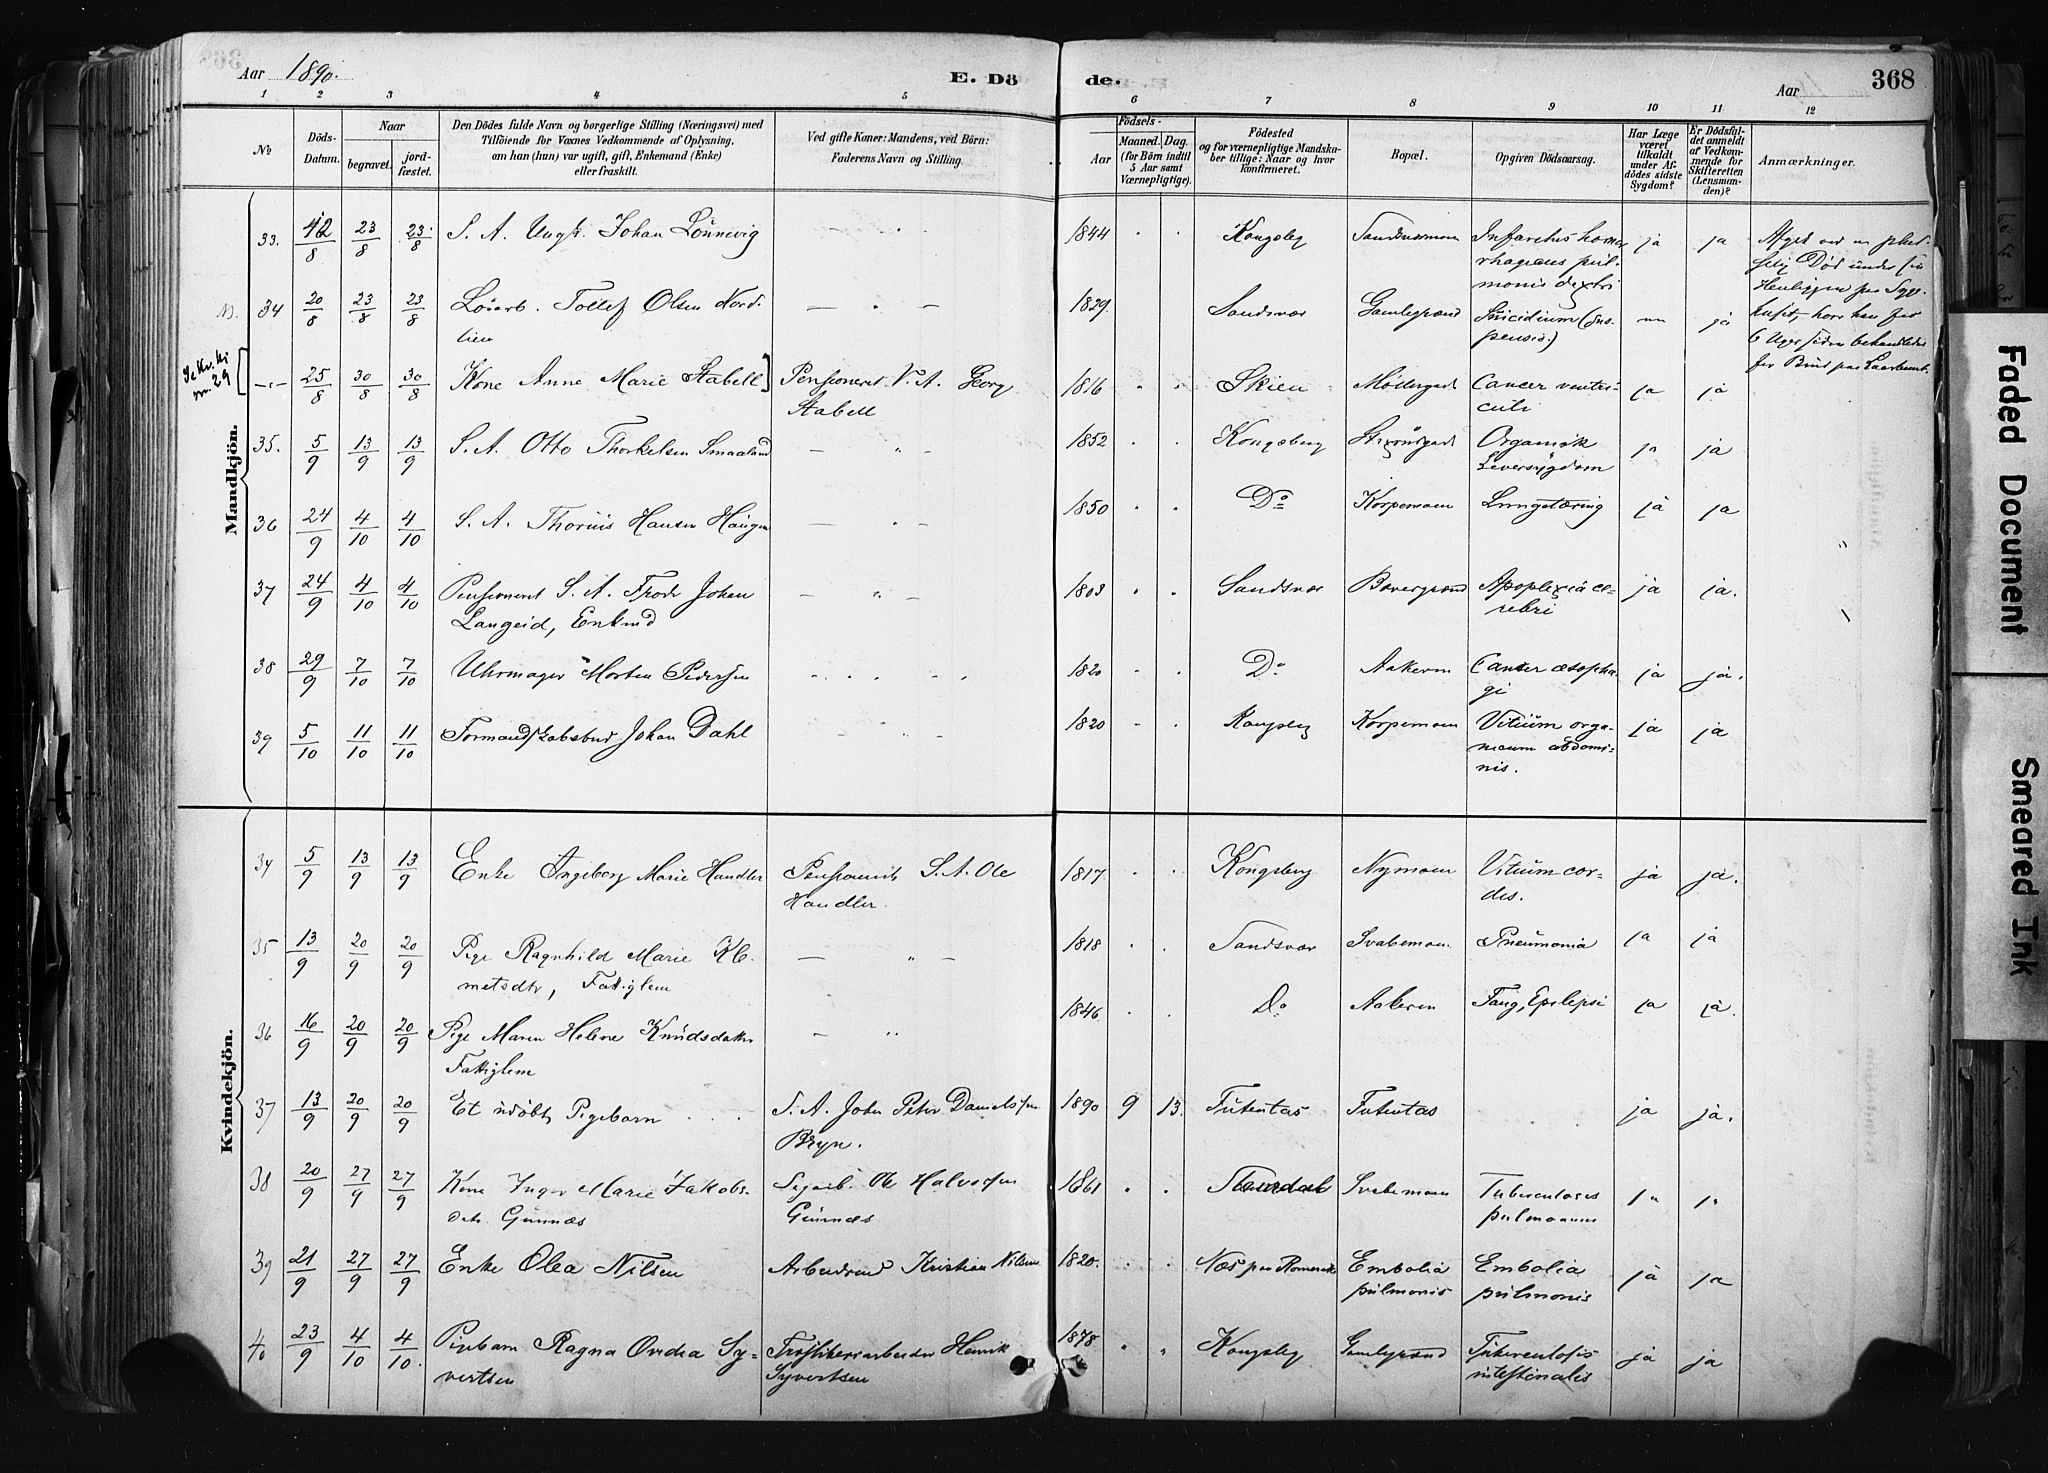 Aar 1890. E. Döde. Aar 368
1 2 3 4 5 6 7 8 9 10 11 12
No
Döds-Datum.
Naar
begravet. jordfæstet.
Den Dödes fulde Navn og borgerlige Stilling (Næringsvei) med
Tilföiende for Voxnes Vedkommende af Oplysning,
om han (hun) var ugift, gift, Enkemand (Enke)
eller fraskilt.
Ved gifte Koner: Mandens, ved Börn:
Faderens Navn og Stilling.
Födsels-
Aar
Maaned. Dag.
(for Börn indtil
5 Aar samt
Værnepligtige).
Födested
og for værnepligtige Mandskaber tillige: Naar og hvor
konfirmeret.
Bopæl.
Opgiven Dödsaarsag.
Har Læge
været
tilkaldt
under Afdödes sidste
Sygdom?
Er Dödsfaldet anmeldt
af Vedkommende for
Skifteretten
(Lensmanden)?
Anmærkninger.
Mandkjön.
33. 12/8 23/8 23/8 S. A. Ungk. Johan Lönnevig 1844 Kongsbg Infarctus hæmorrhagicus pulmonis dextri ja ja
34 20/8 23/8 23/8 Löiarb. Tollef Olsen Nordlien 1829 Sandsvær Gamlegrænd Suicidium (suspensio.) ja
25/8 30/8 30/8 Kone Anne Marie Stabell] Pensioneret V. A. Georg Stabell 1816 Skien Möllergad Cancer ventriculi ja ja
35. 5/9 13/9 13/9 S. A. Otto Thorkelsen Smaaland 1852 Kongsberg Organisk Leversygdom ja ja
36 24/9 4/10 4/10 S. A. Hansen Haugen 1850 Do Korpemoen Lungetæring ja ja
37 24/9 4/10 4/10 Pensioneret S. A. Johan Langeid, Enkmd 1803 Sandsvær Apoplexia cerebri ja ja.
38 29/9 7/10 7/10 Uhrmager Morten Pedersen 1820 Do Aakeren Cancer æsophagi ja ja.
39 5/10 11/10 11/10 Johan Dahl 1820 Kongsbg Korpemoen Vitium organicum abdominis. ja ja
Kvindekjön.
34 5/9 13/9 13/9 Enke Ingeborg Marie Handler Pensioneret S. A. Ole Handler. 1817 Kongsberg Nymoen Vitium cordis. ja ja.
35 13/9 20/9 20/9 Pige Ragnhild Marie Klemetsdtr, Fattiglem 1818 Sandsvær Svabemoen Pneumonia ja ja
36 16/9 20/9 20/9 Pige Maren Helene Knudsdatter Fattiglem 1846 Do Aakeren Epilepsi ja ja.
37 13/9 20/9 20/9 Et udöbt Pigebarn S. A. John Peter Danielsen Bryn. 1890 9 13. Futentas Futentas ja ja.
38 20/9 27/9 27/9 Kone Inger Marie Jakobsdtr. Gunnæs Ole Halvorsen Gunnæs 1861 Svabemoen Tuberculosis pulmonum
39 21/9 27/9 27/9 Enke Olea Nilsen Arbeidsmd Kristian Nilsen 1820. Næs paa Romerike Embolia pulmonis Embolia pulmonis ja ja
40 23/9 4/10 4/10. Pigebarn Ragna Syvertsen Henrik Syvertsen 1878 Kongsbg Gamlegrænd Tuberculosis intestinalis ja ja
Faded Document
Smeared Ink